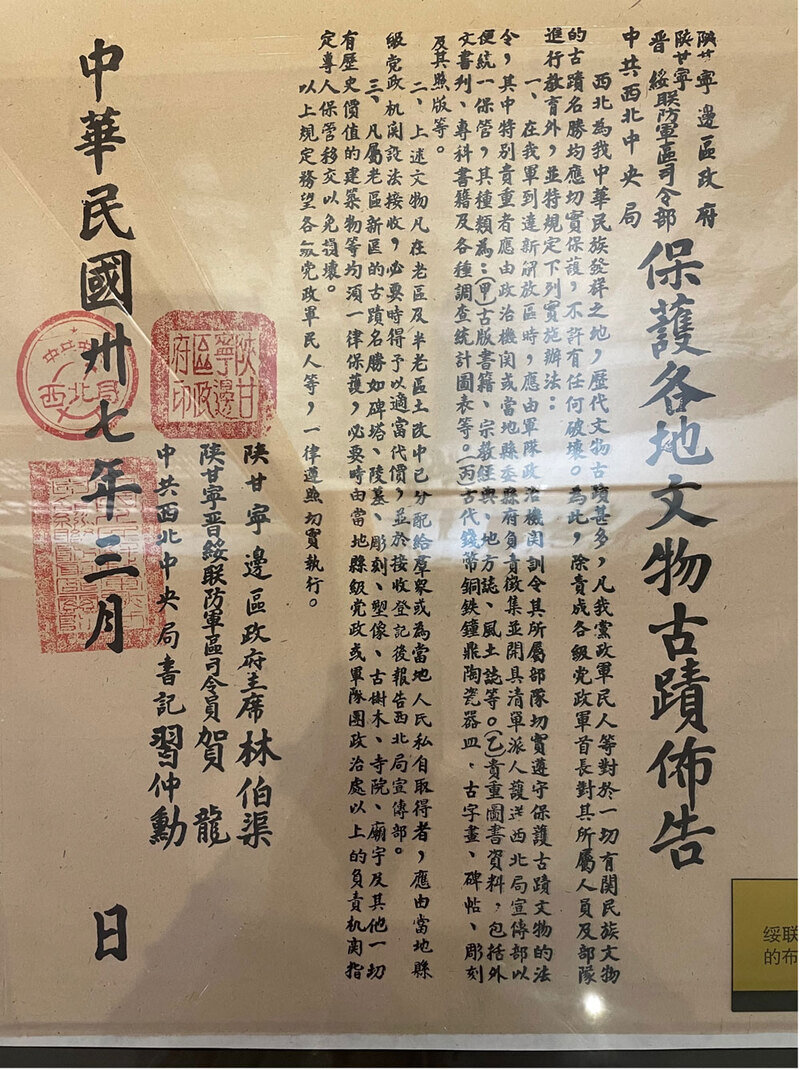 陝甘寧邊區政府
陝甘寧晋綏联防軍區司令部
中共西北中央局
保護各地文物古蹟佈告
西北為我中華民族發祥之地，歷代文物古蹟甚多，凡我黨政軍民人等對於一切有関民族文物
的古蹟名勝均應切實保護，不許有任何破壞。為此，除責成各級党政軍首長對其所屬人員及部隊
進行教育外，並特規定下列實施辦法：
一、在我軍到達新解放區時，應由軍隊政治機関訓令其所屬部隊切實遵守保護古蹟文物的法
令，其中特别貴重者應由政治機関或當地縣委縣府負責徵集並開具清单派人護送西北局宣傳部以
便統一保管，其種類為：（甲）古版書籍、宗教經典、地方誌、風土誌等。（乙）貴重圖書資料，包括外
文書刋、專科書籍及各種調查統計圖表等。（丙）古代錢幣銅鉄鐘鼎陶瓷器皿、古字畫、碑帖、彫刻
及其照版等。
二、上述文物凡在老區及半老區土改中已分配給羣衆或為當地人民私自取得者，應由當地縣
級党政机関設法接收，必要時得予以適當代價，並於接收登記後報告西北局宣傳部。
三、凡屬老區新區的古蹟名勝如碑塔、陵墓、彫刻、塑像、古樹木、寺院、廟宇及其他一切
有歷史價值的建築物等均須一律保護，必要時由當地縣級党政或軍隊團政治處以上的負責机関指
定專人保管移交以免損壞。
以上規定務望各級党政軍民人等，一律遵照切實執行。
陝甘寧邊區政府主席林伯渠
陝甘寧晋綏联防軍區司令員賀龍
中共西北中央局書記習仲勳
陝甘寧邊區政府印
西北局
中華民國卅七年三月 日
绥联
的布